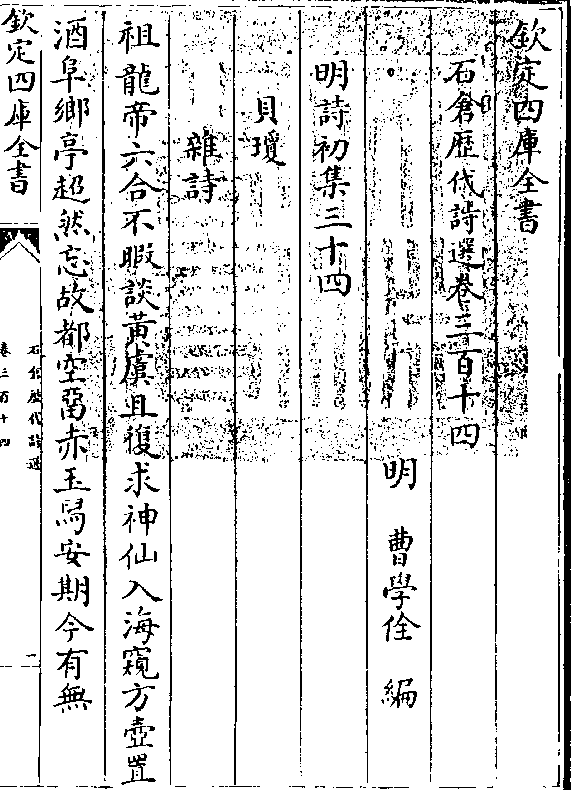 欽定四庫全書
石倉歷代詩選卷三百十四
明 曹學佺 編
明詩初集三十四
貝瓊
雜詩
祖龍帝六合不暇談黃虞且復求神仙入海窺方壺置
酒阜鄉亭超然忘故都空留赤玉舄安期今有無
欽定四庫全書
石倉歷代詩選
卷三百十四
一